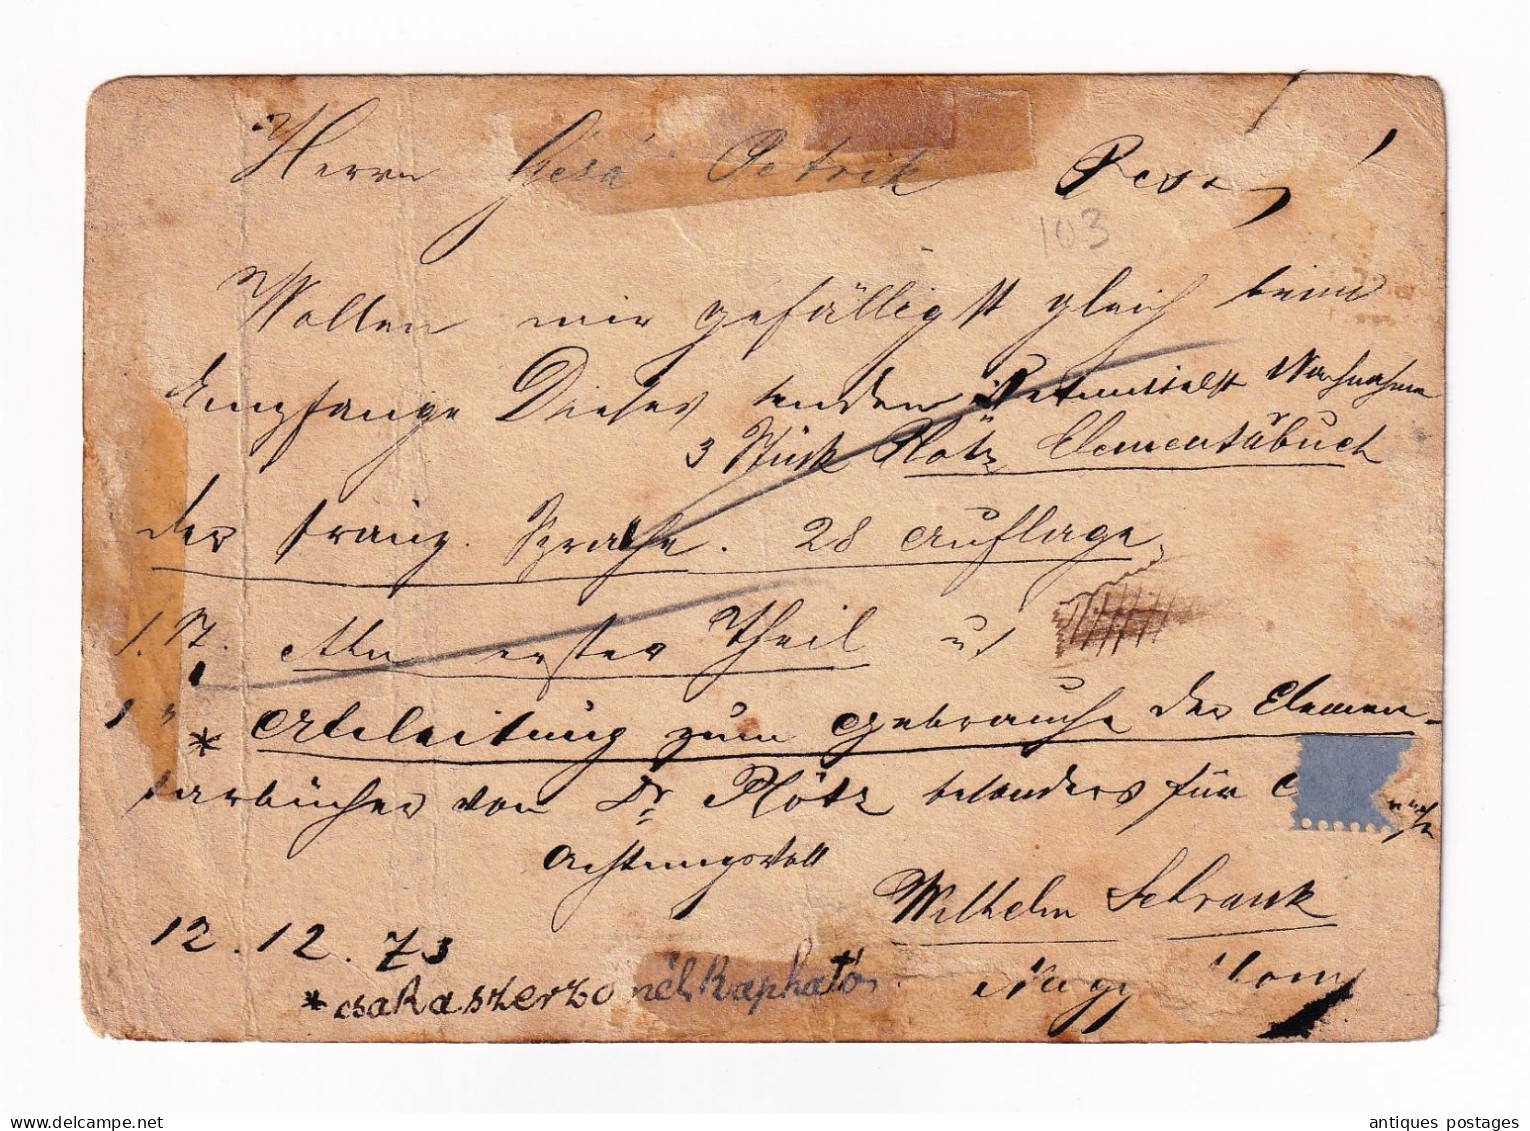 Herrn Gésa Petrik Pest
103
Wollen mir gefälligst gleich beim
Empfange Dieses senden mittelst Nachnahme
3 Stück Plötz Elementarbuch
der franz. Sprache. 28 Auflage
1. St. erster Theil u.
1 " * Anleitung zum Gebrauche der Elemen-
tarbücher von Dr Plötz besonders für
Achtungsvoll
Wilhelm Schrank
12.12.73
Nagy
* csak a szerzőnél kapható
antiques postages